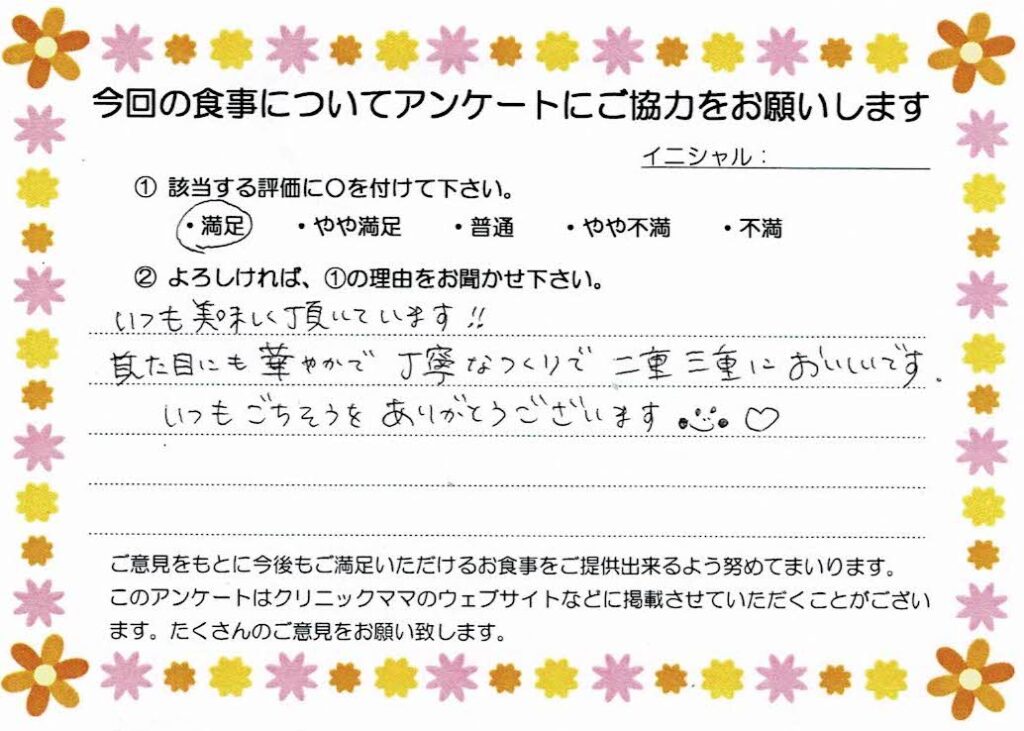 今回の食事についてアンケートにご協力をお願いします
イニシャル：
① 該当する評価に〇を付けて下さい。
・満足 ・やや満足 ・普通 ・やや不満 ・不満
② よろしければ、①の理由をお聞かせ下さい。
いつも美味しく頂いています!!
見た目にも華やかで 丁寧なつくりで 二重三重においしいです。
いつもごちそうを ありがとうございます ♡
ご意見をもとに今後もご満足いただけるお食事をご提供出来るよう努めてまいります。
このアンケートはクリニックママのウェブサイトなどに掲載させていただくことがござい
ます。たくさんのご意見をお願い致します。